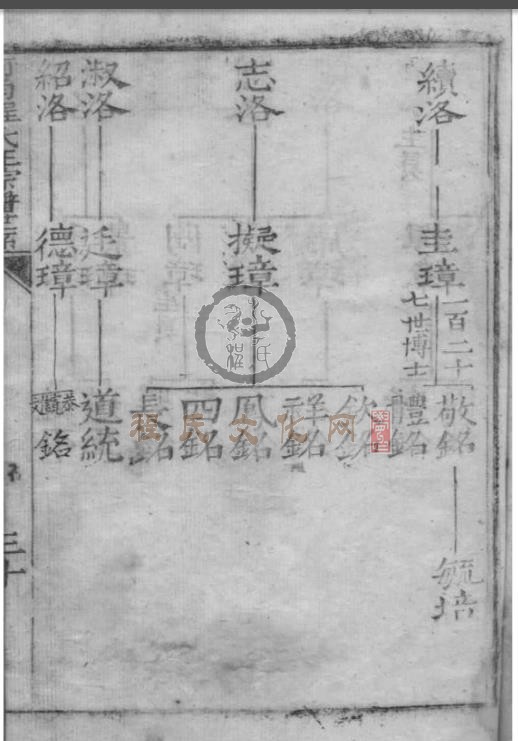 續洛
圭璋 一百二十
七世博士
敬銘
體銘
毓培
志洛
擬璋
欽銘
祥銘
鳳銘
四銘
長銘
淑洛
廷璋
道統
紹洛
德璋
銘
三十
程氏文化网